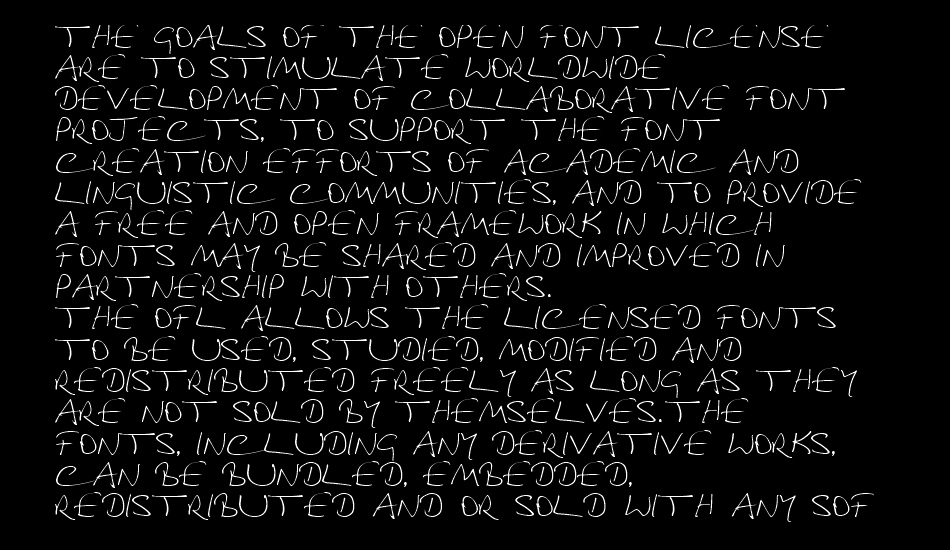 THE GOALS OF THE OPEN FONT LICENSE
ARE TO STIMULATE WORLDWIDE
DEVELOPMENT OF COLLABORATIVE FONT
PROJECTS, TO SUPPORT THE FONT
CREATION EFFORTS OF ACADEMIC AND
LINGUISTIC COMMUNITIES, AND TO PROVIDE
A FREE AND OPEN FRAMEWORK IN WHICH
FONTS MAY BE SHARED AND IMPROVED IN
PARTNERSHIP WITH OTHERS.
THE OFL ALLOWS THE LICENSED FONTS
TO BE USED, STUDIED, MODIFIED AND
REDISTRIBUTED FREELY AS LONG AS THEY
ARE NOT SOLD BY THEMSELVES.THE
FONTS, INCLUDING ANY DERIVATIVE WORKS,
CAN BE BUNDLED, EMBEDDED,
REDISTRIBUTED AND OR SOLD WITH ANY SOF